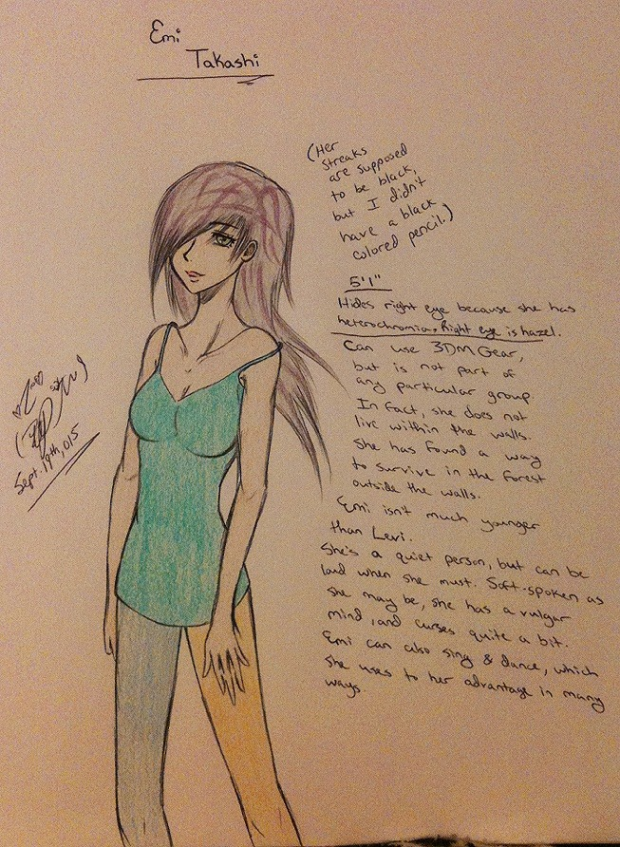 Emi
Takashi
(Her
streaks
are supposed
to be black,
but I didn't
have a black
colored pencil.)
5'1"
Hides right eye because she has
heterochromia. Right eye is hazel.
Can use 3DM Gear,
but is not part of
any particular group.
In fact, she does not
live within the walls.
She has found a way
to survive in the forest
outside the walls.
Emi isn't much younger
than Levi.
She's a quiet person, but can be
loud when she must. Soft-spoken as
she may be, she has a vulgar
mind, and curses quite a bit.
Emi can also sing & dance, which
she uses to her advantage in many
ways.
Sept. 19th, 015